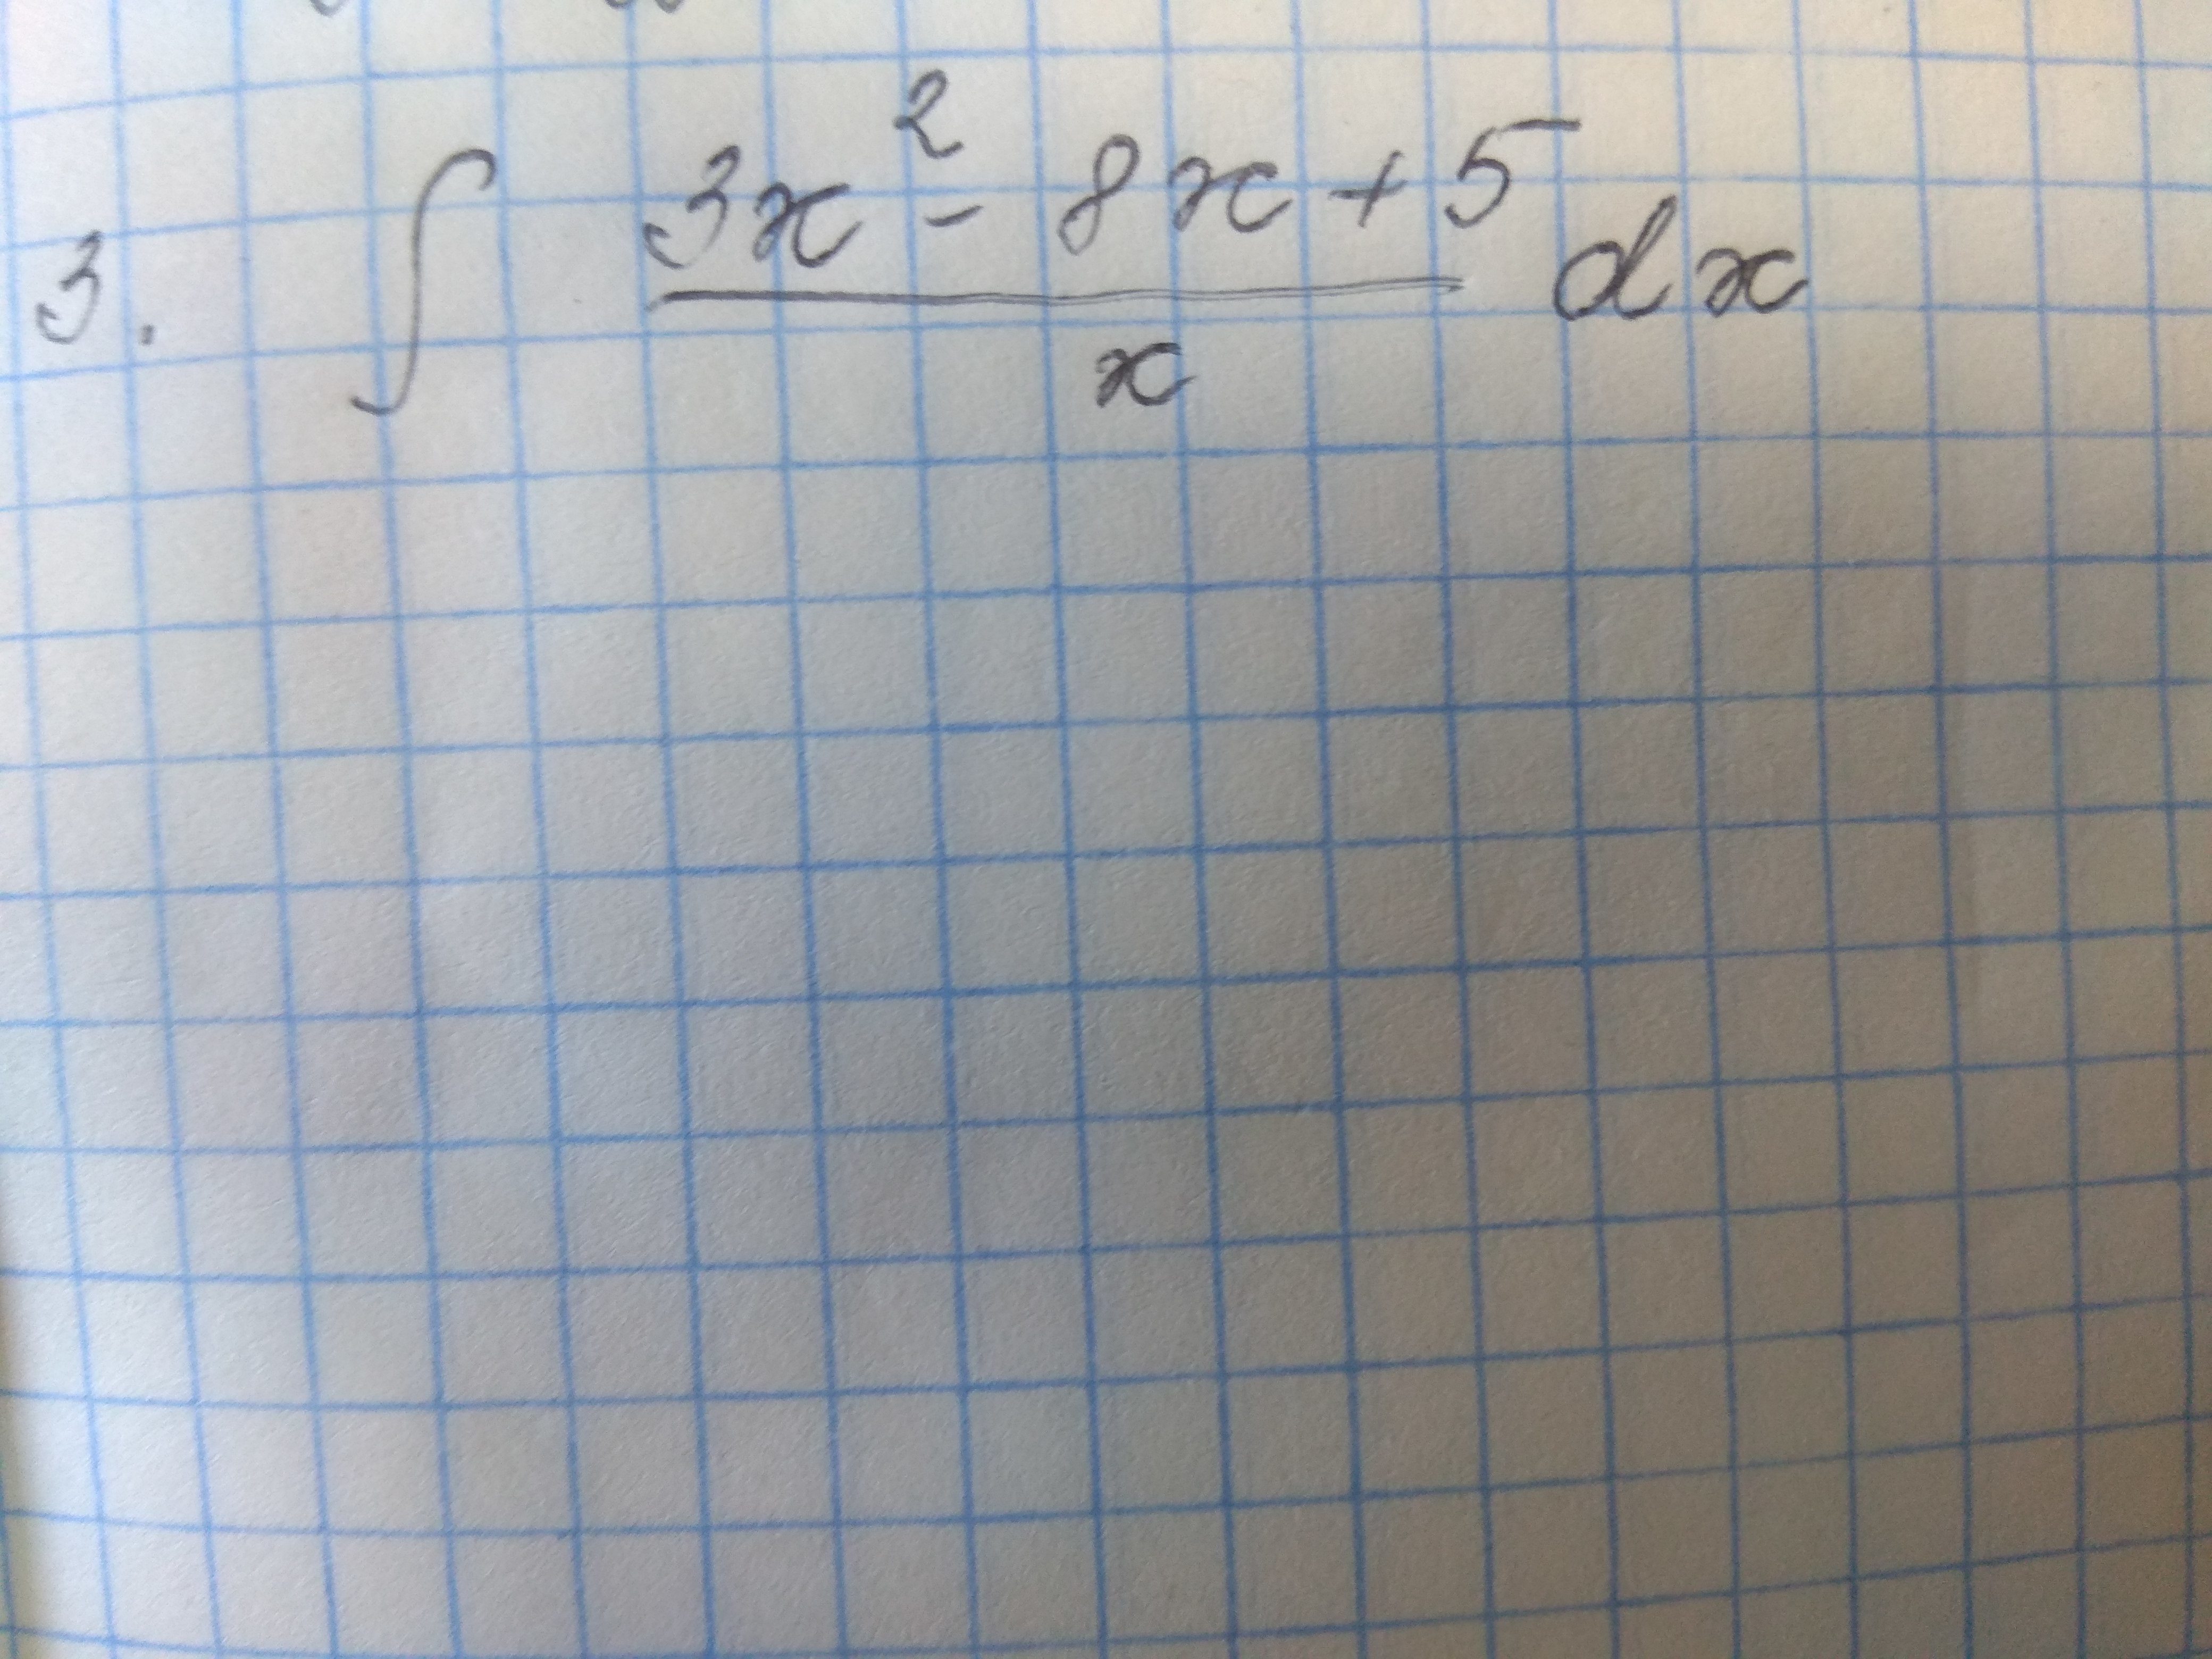 3. ∫ (3x² - 8x + 5)/x dx